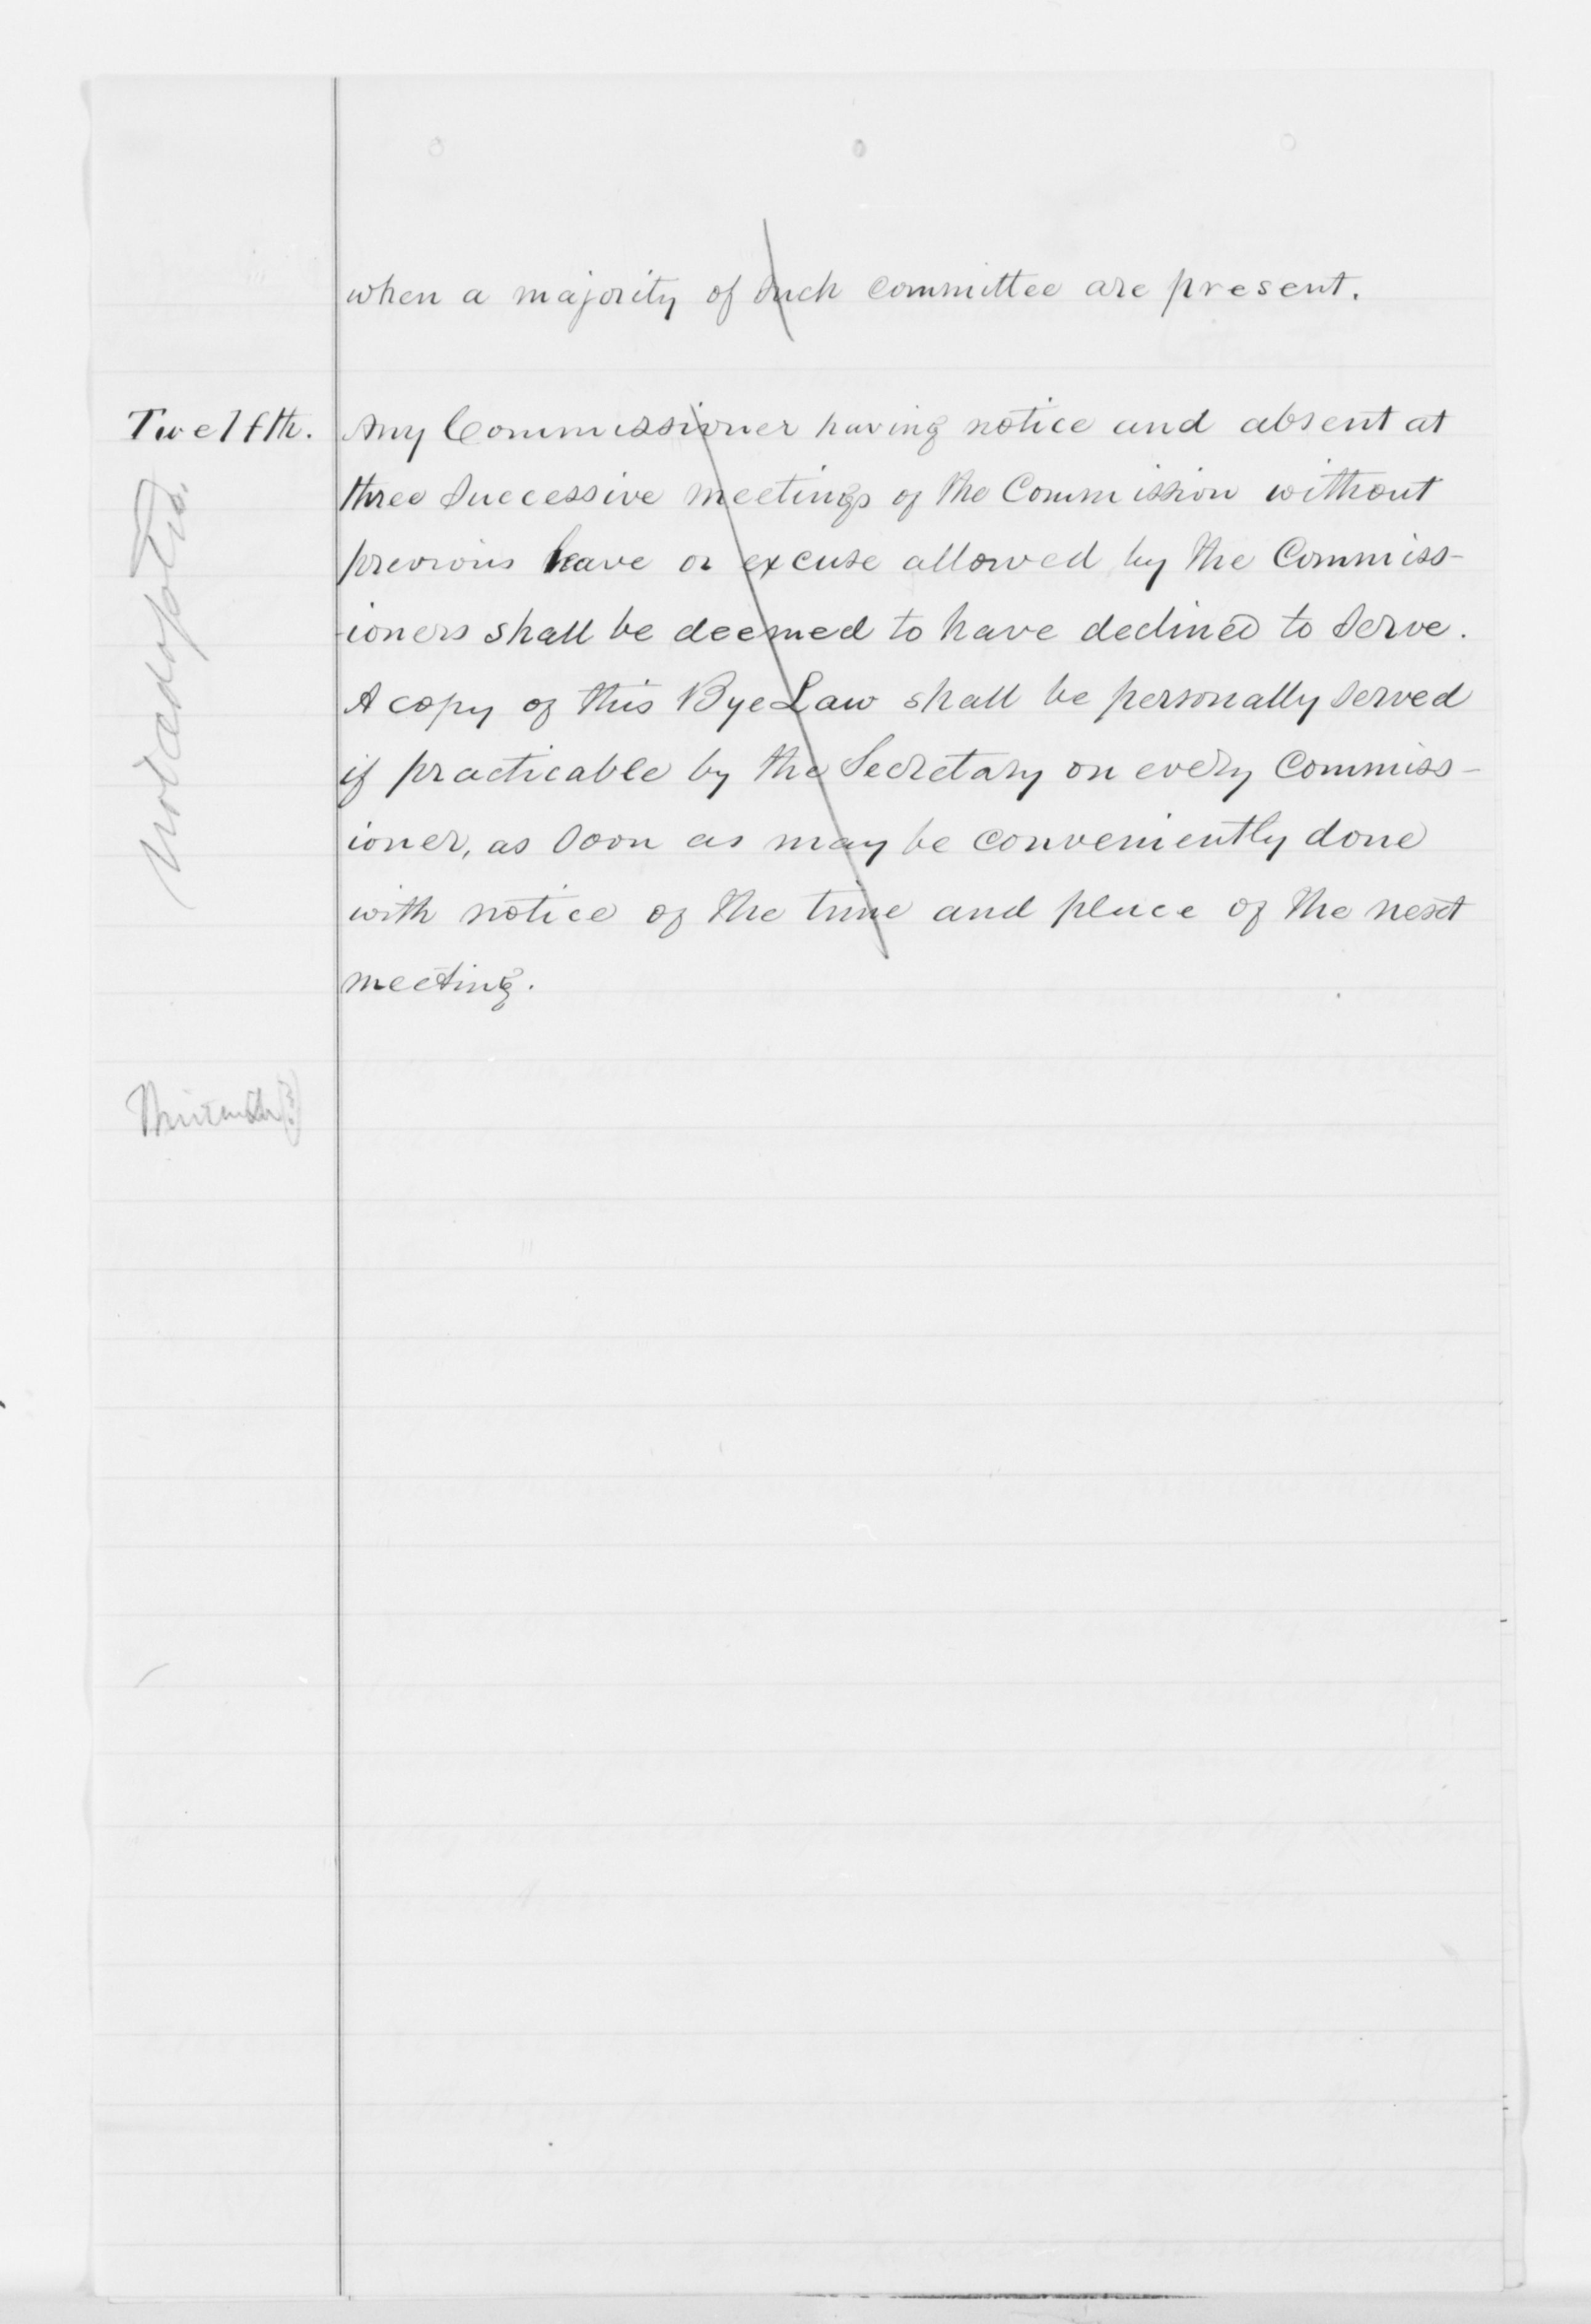 when a majority of such committee are present.
Twelfth. Any Commissioner having notice and absent at
three successive meetings of the Commission without
previous leave or excuse allowed by the Commiss-
ioners shall be deemed to have declined to serve.
A copy of this Bye Law shall be personally served
if practicable by the Secretary on every Commiss-
ioner, as soon as may be conveniently done
with notice of the time and place of the next
meeting.
Not adopted.
Thirteenth